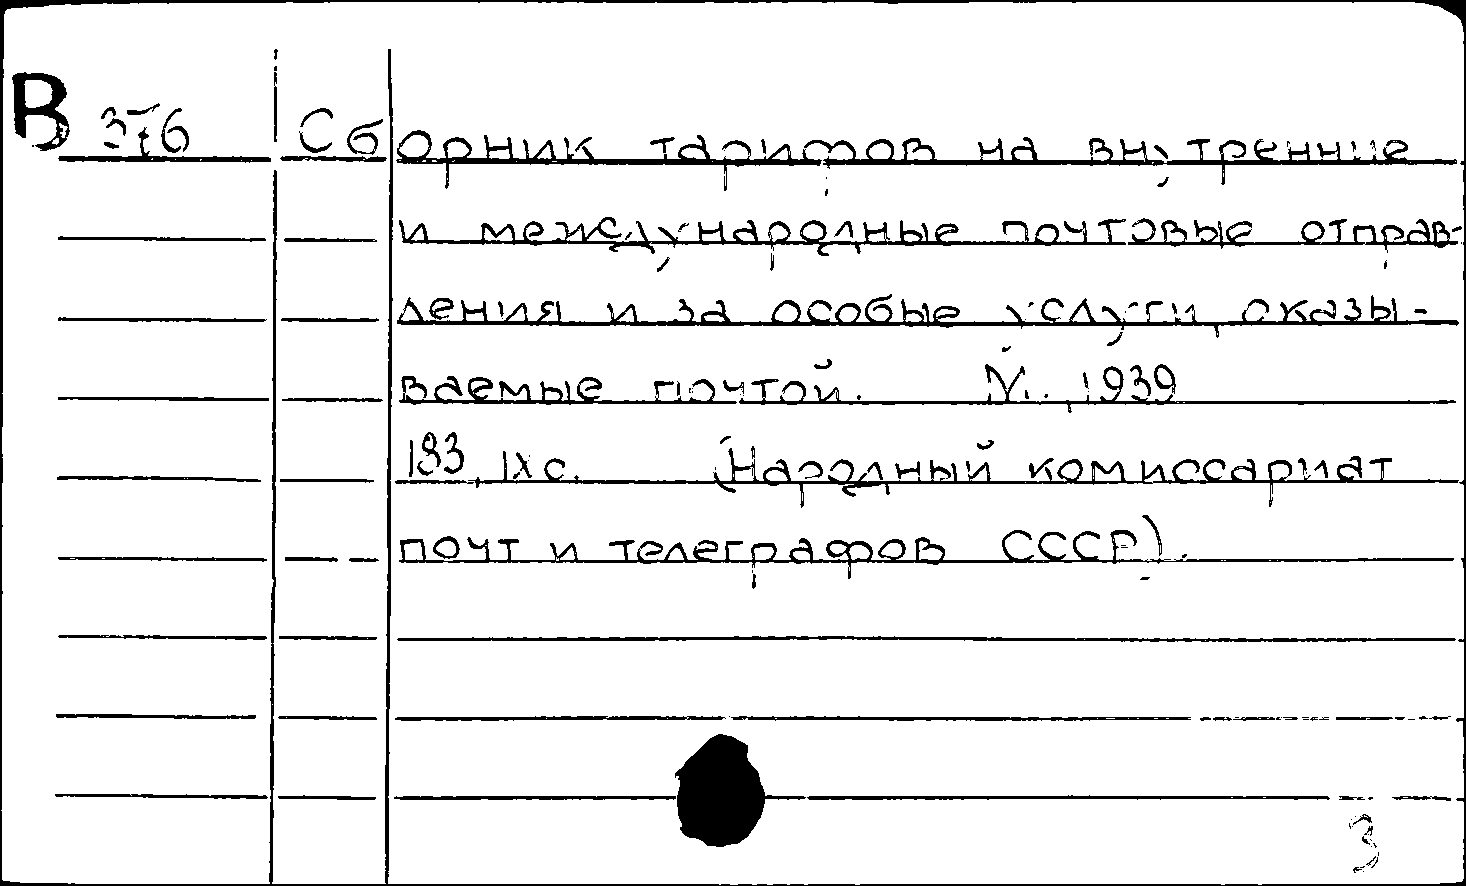 В 376 Сборник тарифов на внутренние
и международные почтовые отправ-
ления и за особые услуги, оказы-
ваемые почтой. М., 1939
193, IX с. (Народный комиссариат
почт и телеграфов СССР).
3